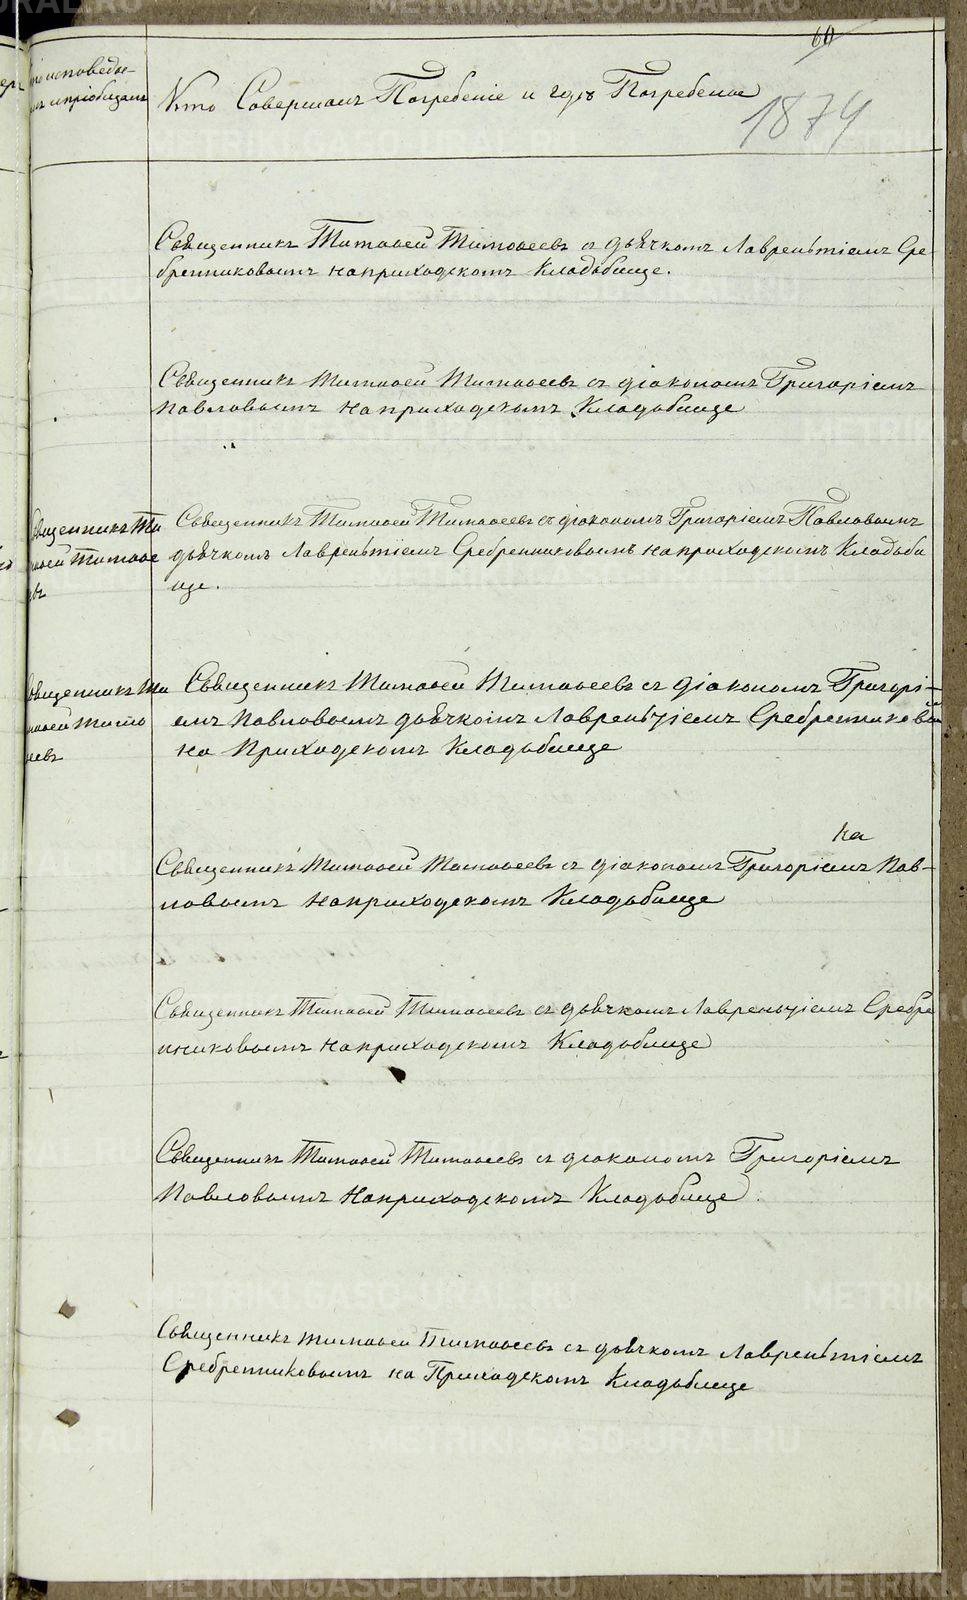 60
Кто исповѣды-
валъ и пріобщалъ
Кто Совершалъ Погребеніе и гдѣ Погребены
1874
Священникъ Тимофей Тимофеевъ съ дьячкомъ Лаврентіемъ Сре
бренниковымъ на приходскомъ Кладбище.
Священникъ Тимофей Тимофеевъ съ діакономъ Григоріемъ
Павловымъ на приходскомъ Кладбище
Священникъ Ти
мофей Тимофе
евъ
Священникъ Тимофей Тимофеевъ съ діакономъ Григоріемъ Павловымъ
дьячкомъ Лаврентіемъ Сребренниковымъ на приходскомъ Кладби
ще.
Священникъ Ти
мофей Тимо
феевъ
Священникъ Тимофей Тимофеевъ съ діакономъ Григорі-
емъ Павловымъ дьячкомъ Лаврентіемъ Сребренниковым
на Приходскомъ Кладбище
на
Священникъ Тимофей Тимофеевъ съ діакономъ Григоріемъ Пав-
ловымъ на приходскомъ Кладбище
Священникъ Тимофей Тимофеевъ съ дьячкомъ Лаврентіемъ Сребре
нниковымъ на приходскомъ Кладбище
Священникъ Тимофей Тимофеевъ съ діакономъ Григоріемъ
Павловымъ на приходскомъ Кладбище
Священникъ Тимофей Тимофеевъ съ дьячкомъ Лаврентіемъ
Сребренниковымъ на Приходскомъ Кладбище
METRIKI.GASO-URAL.RU